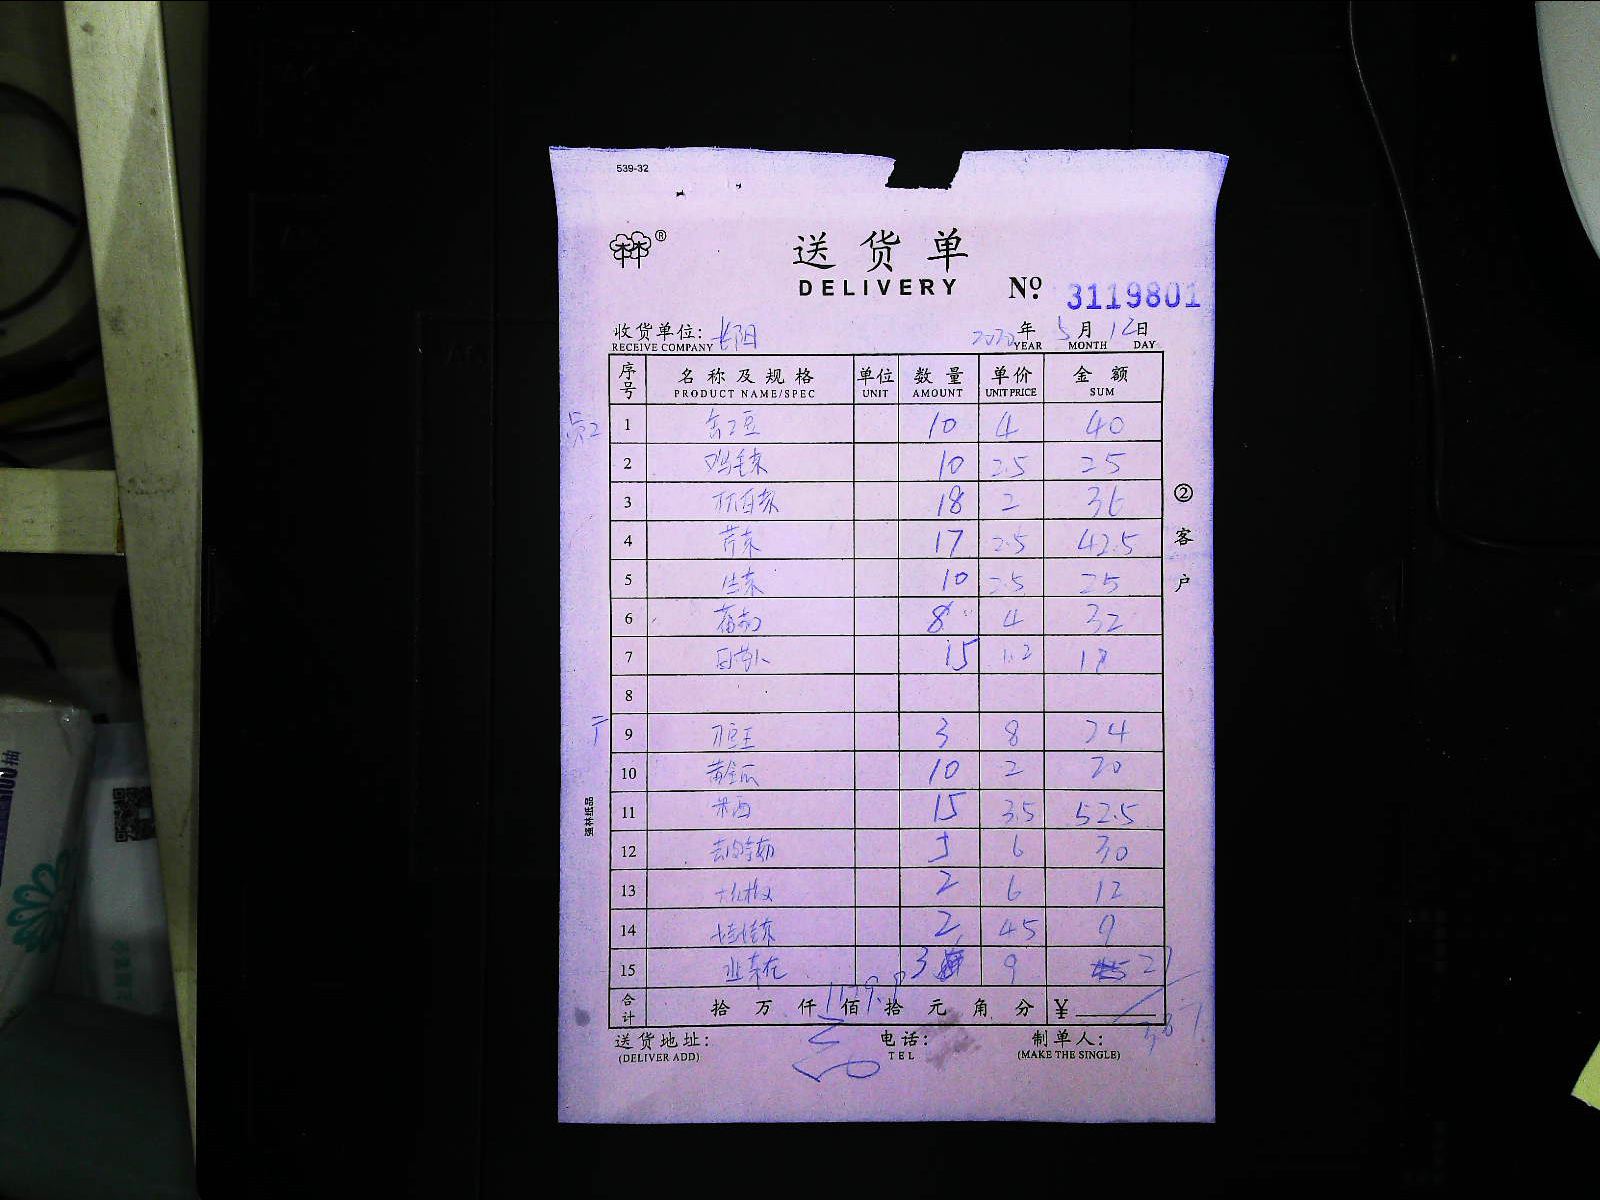 539-32
送货单
DELIVERY
№ 3119801
收货单位: 长阳 2020年 5月 12日
RECEIVE COMPANY YEAR MONTH DAY
序号 名称及规格 单位 数量 单价 金额
PRODUCT NAME/SPEC UNIT AMOUNT UNIT PRICE SUM
1 10 4 40
2 鸡毛菜 10 2.5 25
3 杭白菜 18 2 36
4 芹菜 17 2.5 42.5
5 生菜 10 2.5 25
6 8 4 32
7 白萝卜 15 1.2 17
8
9 3 8 24
10 黄金瓜 10 2 20
11 15 3.5 52.5
12 5 6 30
13 2 6 12
14 2 4.5 9
15 韭菜花 3 9 27
合计 拾 万 仟 佰 拾 元 角 分 ¥
送货地址: 电话: 制单人:
(DELIVER ADD) TEL (MAKE THE SINGLE)
②客户
强林纸品